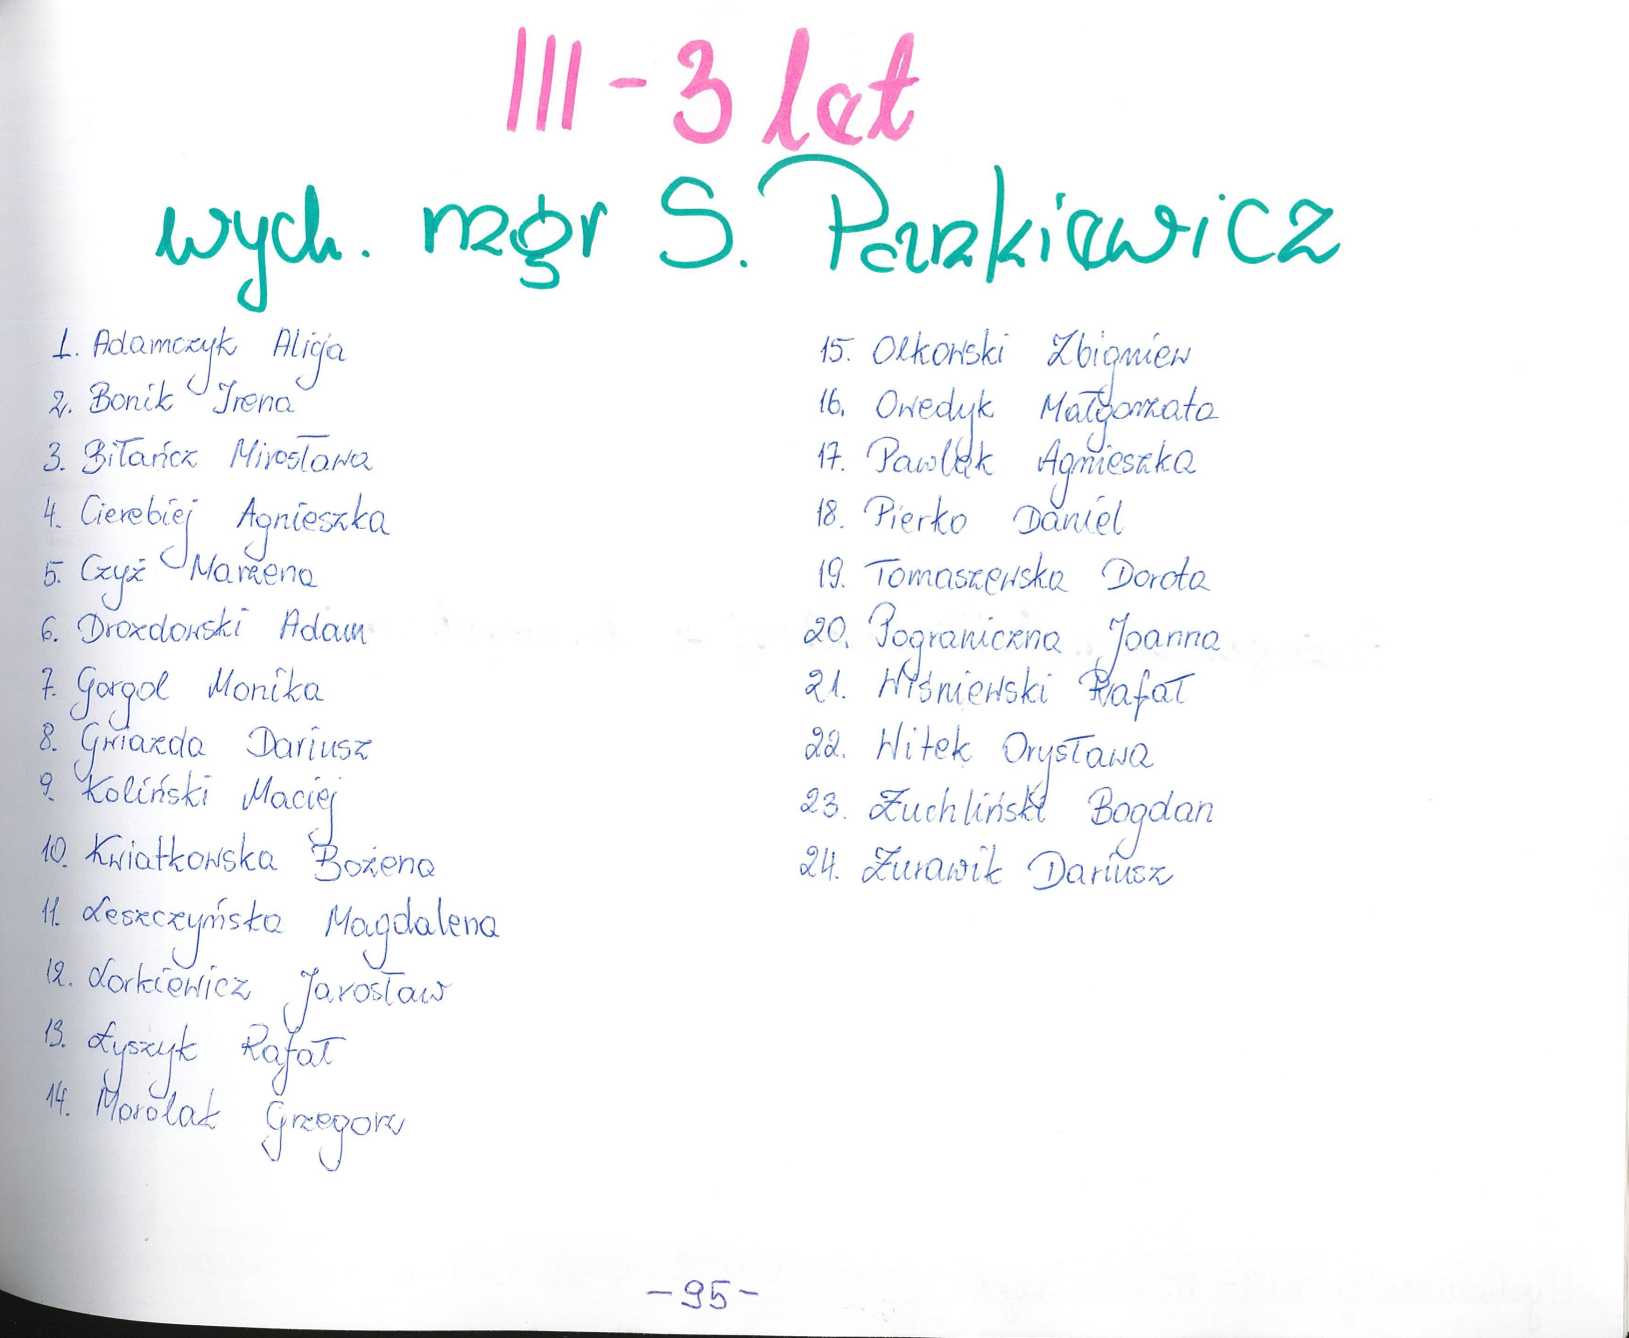 III - 3 lat
wych. mgr S. Paszkiewicz
1. Adamczyk Alicja
2. Bonik Irena
3. Biłańcz Mirosława
4. Cierebiej Agnieszka
5. Czyż Marzena
6. Drozdowski Adam
7. Gorgol Monika
8. Gwiazda Dariusz
9. Koliński Maciej
10. Kwiatkowska Bożena
11. Leszczyńska Magdalena
12. Lorkiewicz Jarosław
13. Łyszyk Rafał
14. Morolak Grzegorz
15. Olkowski Zbigniew
16. Owedyk Małgorzata
17. Pawlak Agnieszka
18. Pierko Daniel
19. Tomaszewska Dorota
20. Pograniczna Joanna
21. Wiśniewski Rafał
22. Witek Orysława
23. Żuchliński Bogdan
24. Żurawik Dariusz
- 95 -